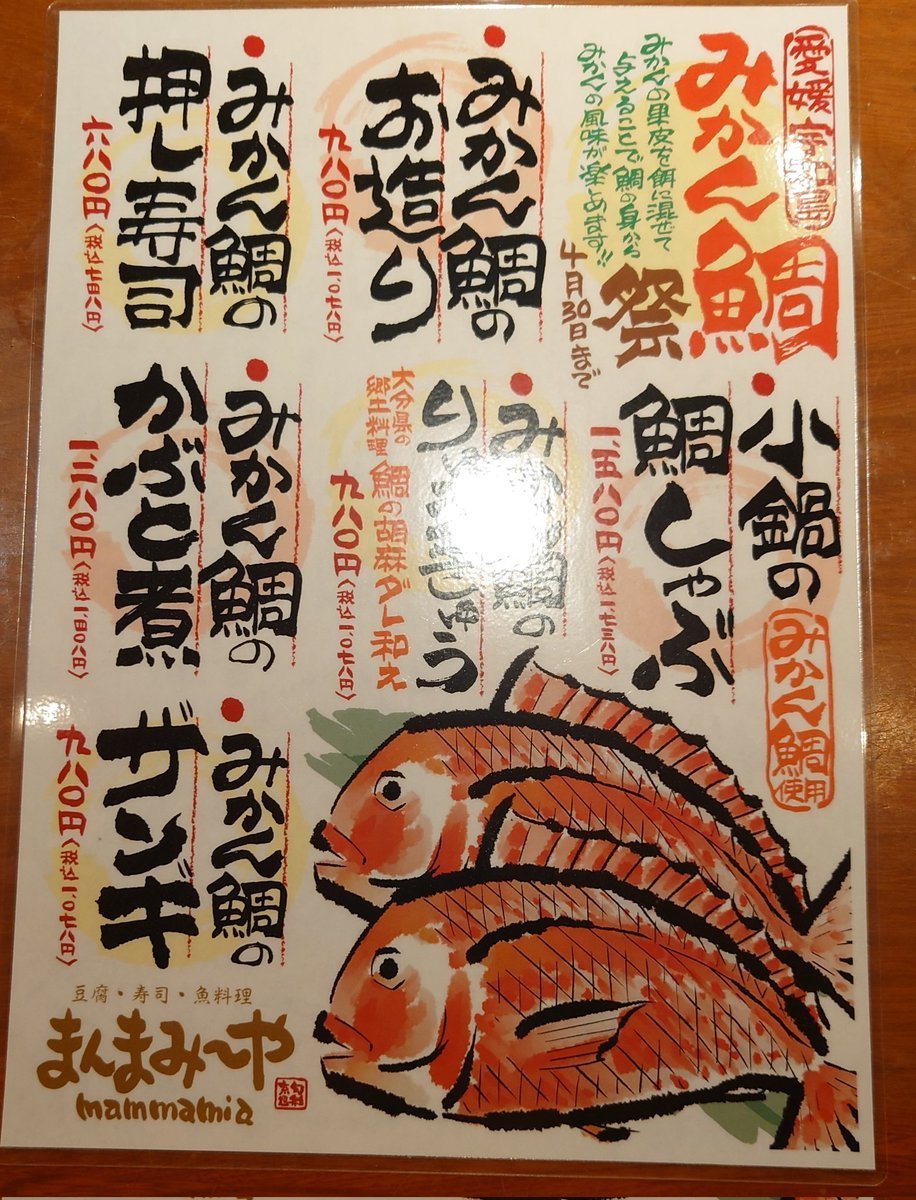 愛媛宇和島
みかん鯛
祭
みかんの果皮を餌に混ぜて
与えることで鯛の身から
みかんの風味が楽しめます!!
4月30日まで
みかん鯛の
お造り
九八〇円〈税込一、〇七八円〉
みかん鯛の
押し寿司
六八〇円〈税込七四八円〉
小鍋の
鯛しゃぶ
一、五八〇円〈税込一、七三八円〉
みかん鯛使用
みかん鯛の
りゅうきゅう
大分県の
郷土料理
鯛の胡麻ダレ和え
九八〇円〈税込一、〇七八円〉
みかん鯛の
かぶと煮
一、二八〇円〈税込一、四〇八円〉
みかん鯛の
ザンギ
九八〇円〈税込一、〇七八円〉
豆腐・寿司・魚料理
まんまみ〜や
mammamia